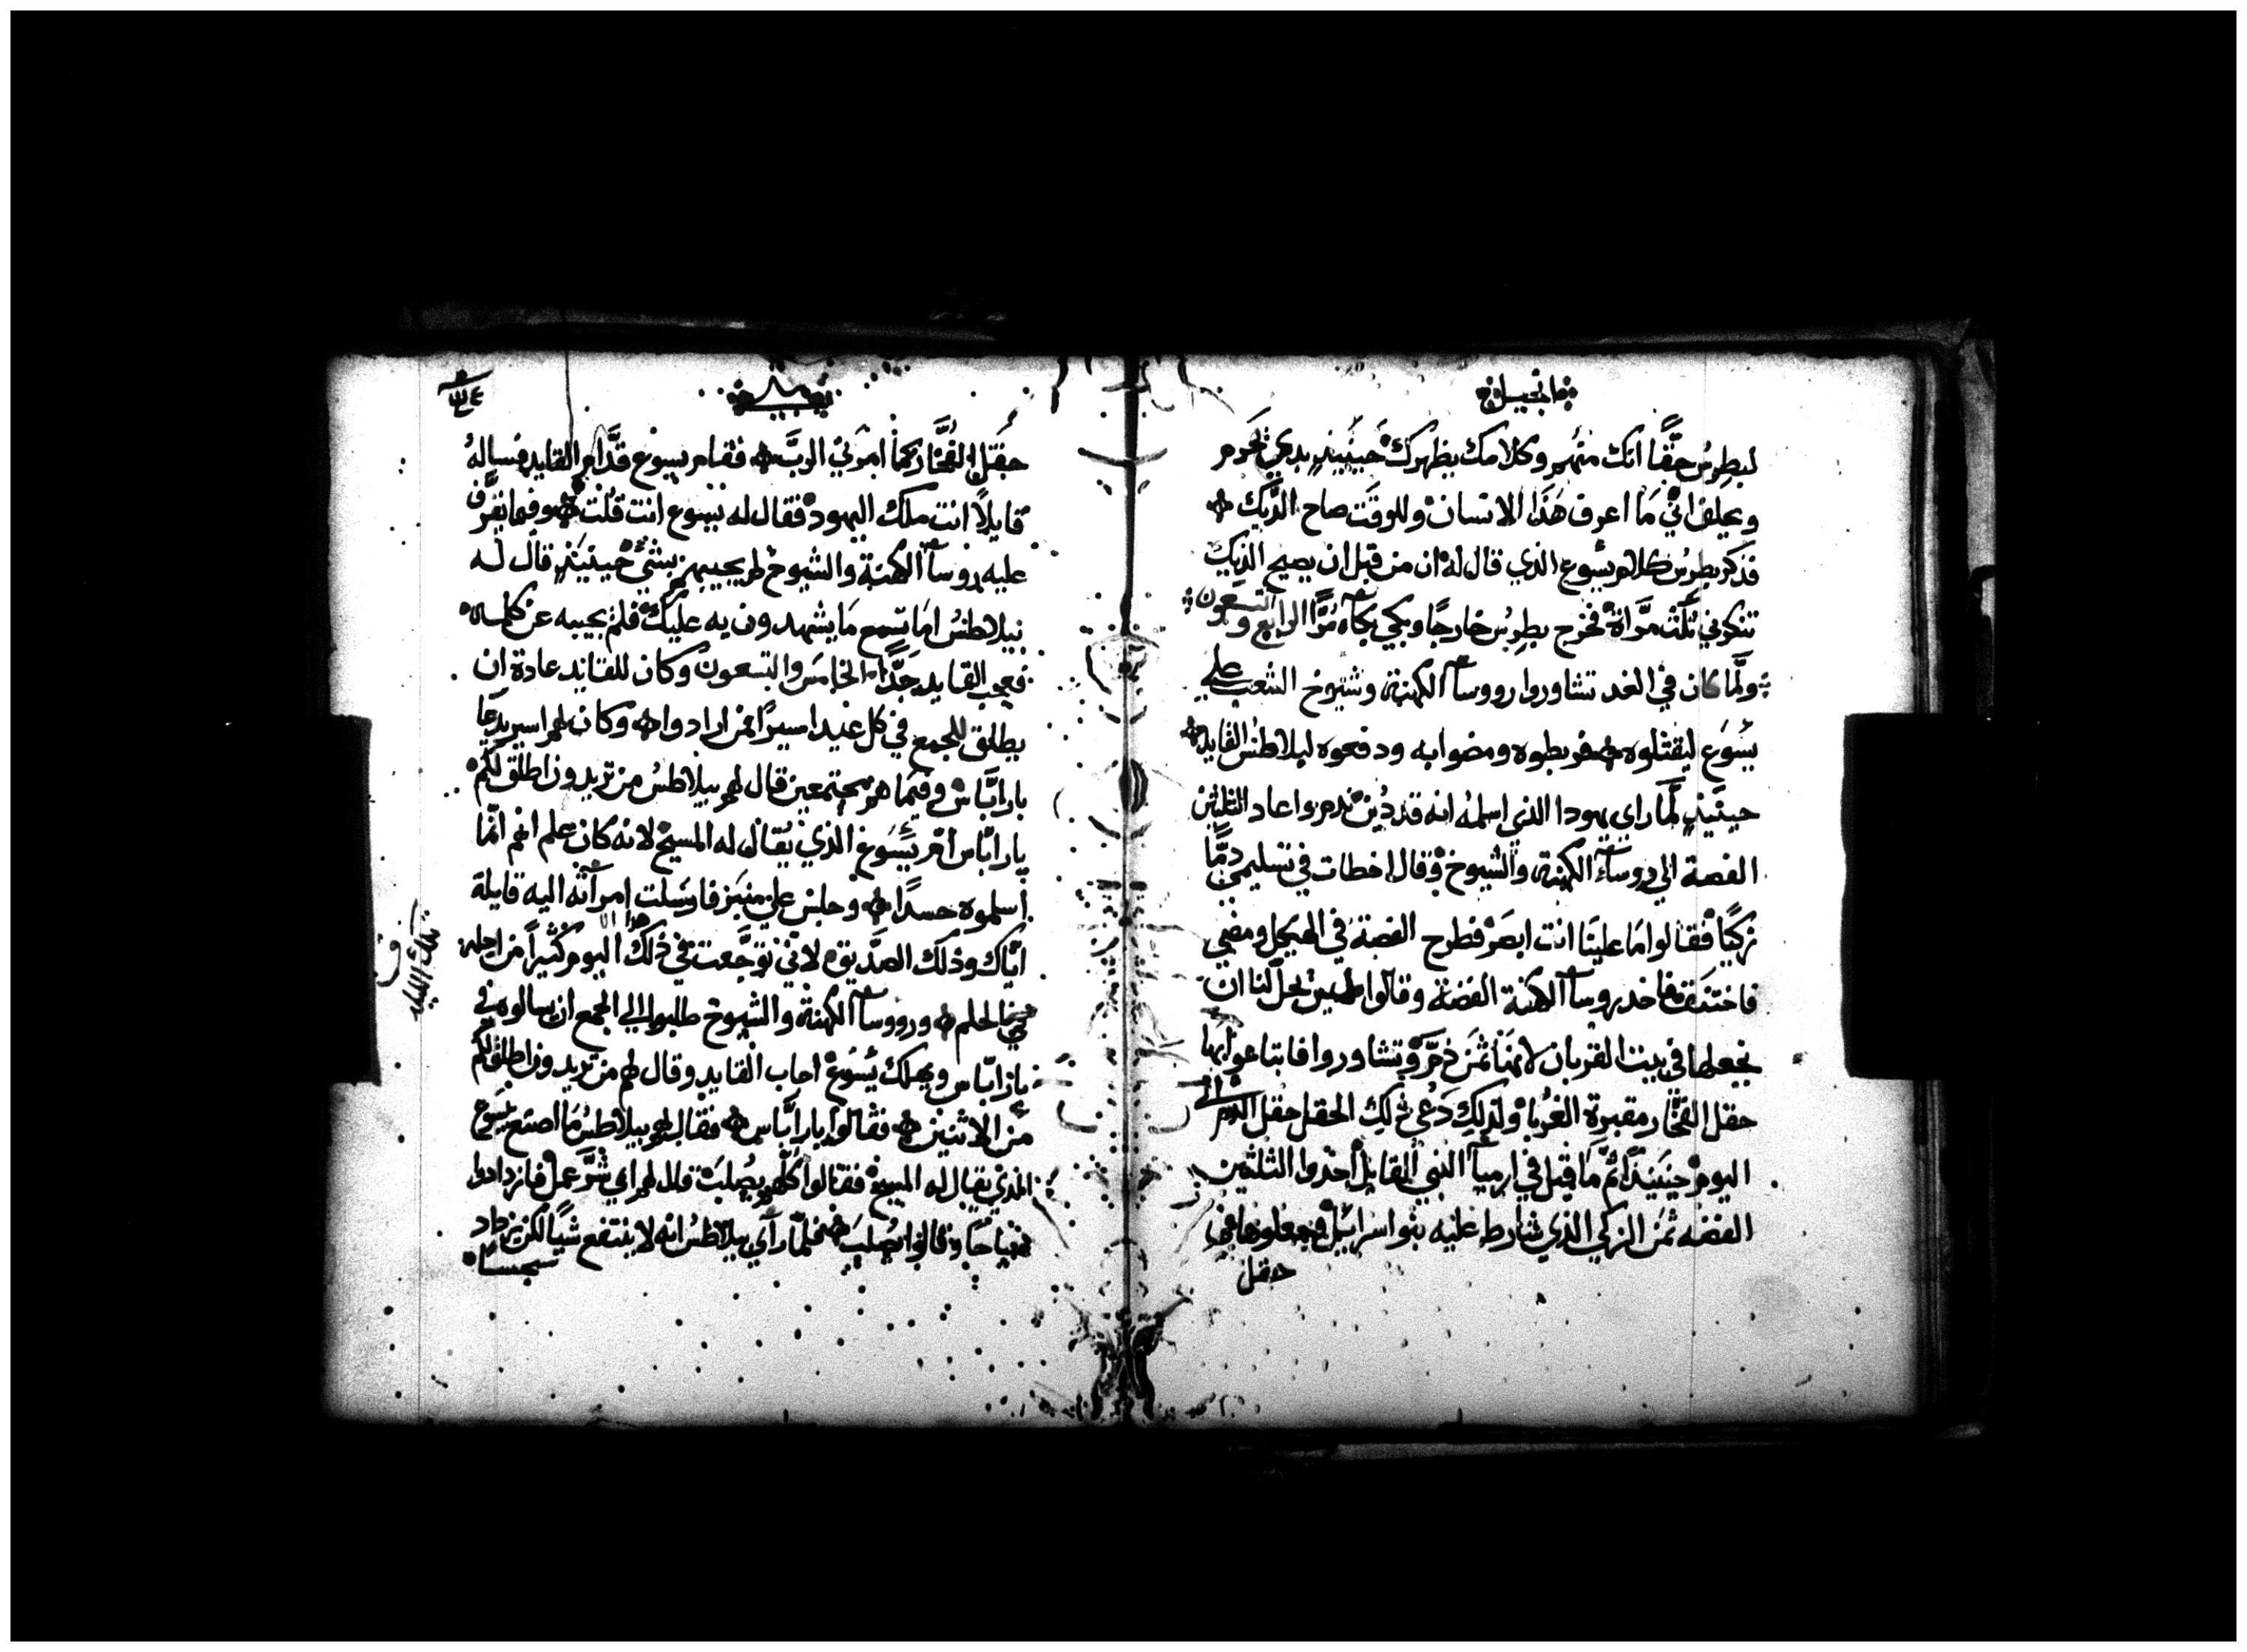 انجيل
لبطرس حقًّا انك منهم وكلامك يظهرك حينيذٍ بدي يحرم
ويحلف انّي مَا اعرف هَذا الانسان وللوقت صاح الدّيك
فذكر بطرس كلام يسوع الذي قال له ان من قبل ان يصيح الديك
تنكرني ثلث مرّاة فخرج بطرس خارجًا وبكي بكآء مُرًّا الرابع والتسعون
ولَّما كان في الغد تشاوروا رووسآ الكهنة وشيوخ الشعب علي
يسُوَع ليقتلوه فربطوه ومضوا به ودفعوه لبلاطس القايد
حينيذٍ لمّا راي يهودا الذي اسلمهُ انه قد دُين ندم واعاد الثلثين
الفضة الي روسآء الكهنة والشيوخ وقال اخطات في تسليمي دمًّا
زكيًّا فقالوا مَا علينا انت ابصَر فطرح الفضة في الهيكل ومضي
فاختنق فاخد روسآ الكهنة الفضة وقالوا ليس يحل لنا ان
نجعلها في بيت القربان لانهَا ثمَن دم وتشاوروا فابتاعوا بهَا
حقل الفخّار مقبرة الغُربا ولذلك دُعي ذلك الحقل حقل الدم الي
اليوم حينيذٍ تمّ مَا قيل في ارميآ النبي القايل اخدوا الثلثين
الفضه ثمَن الزكي الذي شارط عليه بنوا اسرائيل وجعلوها في
حقل
متي
حقل الفُخَّار كمآ امرني الربّ فقام يسوع قدَّام القايد فسالهُ
قايلاً انت ملك اليهود فقال له يسوع انت قلت وفيما يقرّف
عليه روسآ الكهنة والشيوخ لم يجيبهم بشيء حينيذٍ قال له
بيلاطسُ امَا تسمع مَا يشهدون به عليك فلم يجيبه عن كلمه
فعجب القايد جدًّا الخامس والتسعون وكان للقايد عادة ان
يطلق للجمع في كل عيد اسيرًا من ارادوا وكان لهم اسير يدعَا
باراباس وفيمَا هم مجتمعين قال لهم بيلاطس من تريدون اطلق لكم
باراباس ام يسَوع الذي يُقال له المسيح لانه كان علم انهم انّما
اسلموه حسدًا وجلس علي منبَر فارسَلت امرآته اليه قايلة
ايّاك وذلك الصدّيق لانّني توجّعت في ذلك هذا اليوم كثيراً من اجله
في الحلم ورووسآ الكهنة والشيوخ طلبوا الي الجمع ان يسالوه في
باراباس ويهلك يسُوع اجاب القايد وقال لهم من تريدون اطلق لكم
من الاثنين فقالوا باراباس فقال لهم بيلاطس مَا اصنع بيسوع
الذي يقال له المسيح فقالوا كلّهم يصُلبَ قال لهم اي شرّ عمل فازدادوا
صياحًا وقالوا يصُلبَ فلمّا رآي بيلاطس انه لا ينتفع شيًا لكن يزداد
سجسًا
تلك الليله